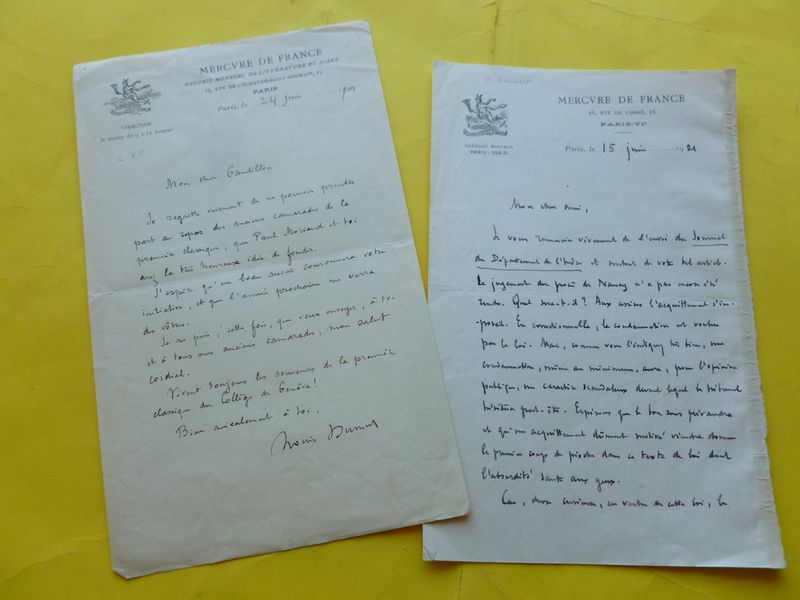 MERCVRE DE FRANCE
RECUEIL MENSUEL DE LITTÉRATURE ET D'ART
15, RVE DE L'ECHAVDÉ-SAINT-GERMAIN, 15
PARIS
Paris, le 24 juin 1901
DIRECTION
le matin de 9 à 11 heures
Mon cher Gaudillon
Je regrette vivement de ne pouvoir prendre
part au repas des anciens camarades de la
première classique, que Paul Moriaud et toi
avez la très heureuse idée de fonder.
J'espère qu'un beau succès couronnera votre
initiative, et que l'année prochaine me verra
des vôtres.
Je ne puis, cette fois, que vous envoyer, à toi
et à tous nos anciens camarades, mon salut
cordial.
Vivent toujours les souvenirs de la première
classique du Collège de Genève!
Bien amicalement à toi,
Louis Dumur
MERCVRE DE FRANCE
26, RVE DE CONDÉ, 26
PARIS-VIe
CHÈQUES POSTAUX
PARIS-259.31
Paris, le 15 juin 1921
Mon cher ami,
Je vous remercie vivement de l'envoi du Journal
du Département de l'Indre et surtout de votre bel article.
Le jugement du procès de Nancy n'a pas encore été
rendu. Quel sera-t-il? Aux assises l'acquittement s'im-
posait. En correctionnelle, la condamnation est voulue
par la loi. Mais, comme vous l'indiquez très bien, une
condamnation, même au minimum, aura, pour l'opinion
publique, un caractère scandaleux devant lequel le tribunal
hésitera peut-être. Espérons que le bon sens prévaudra
et qu'un acquittement dûment motivé viendra donner
le premier coup de pioche dans ce texte de loi dont
l'absurdité saute aux yeux.
Car, chose curieuse, en vertu de cette loi, le